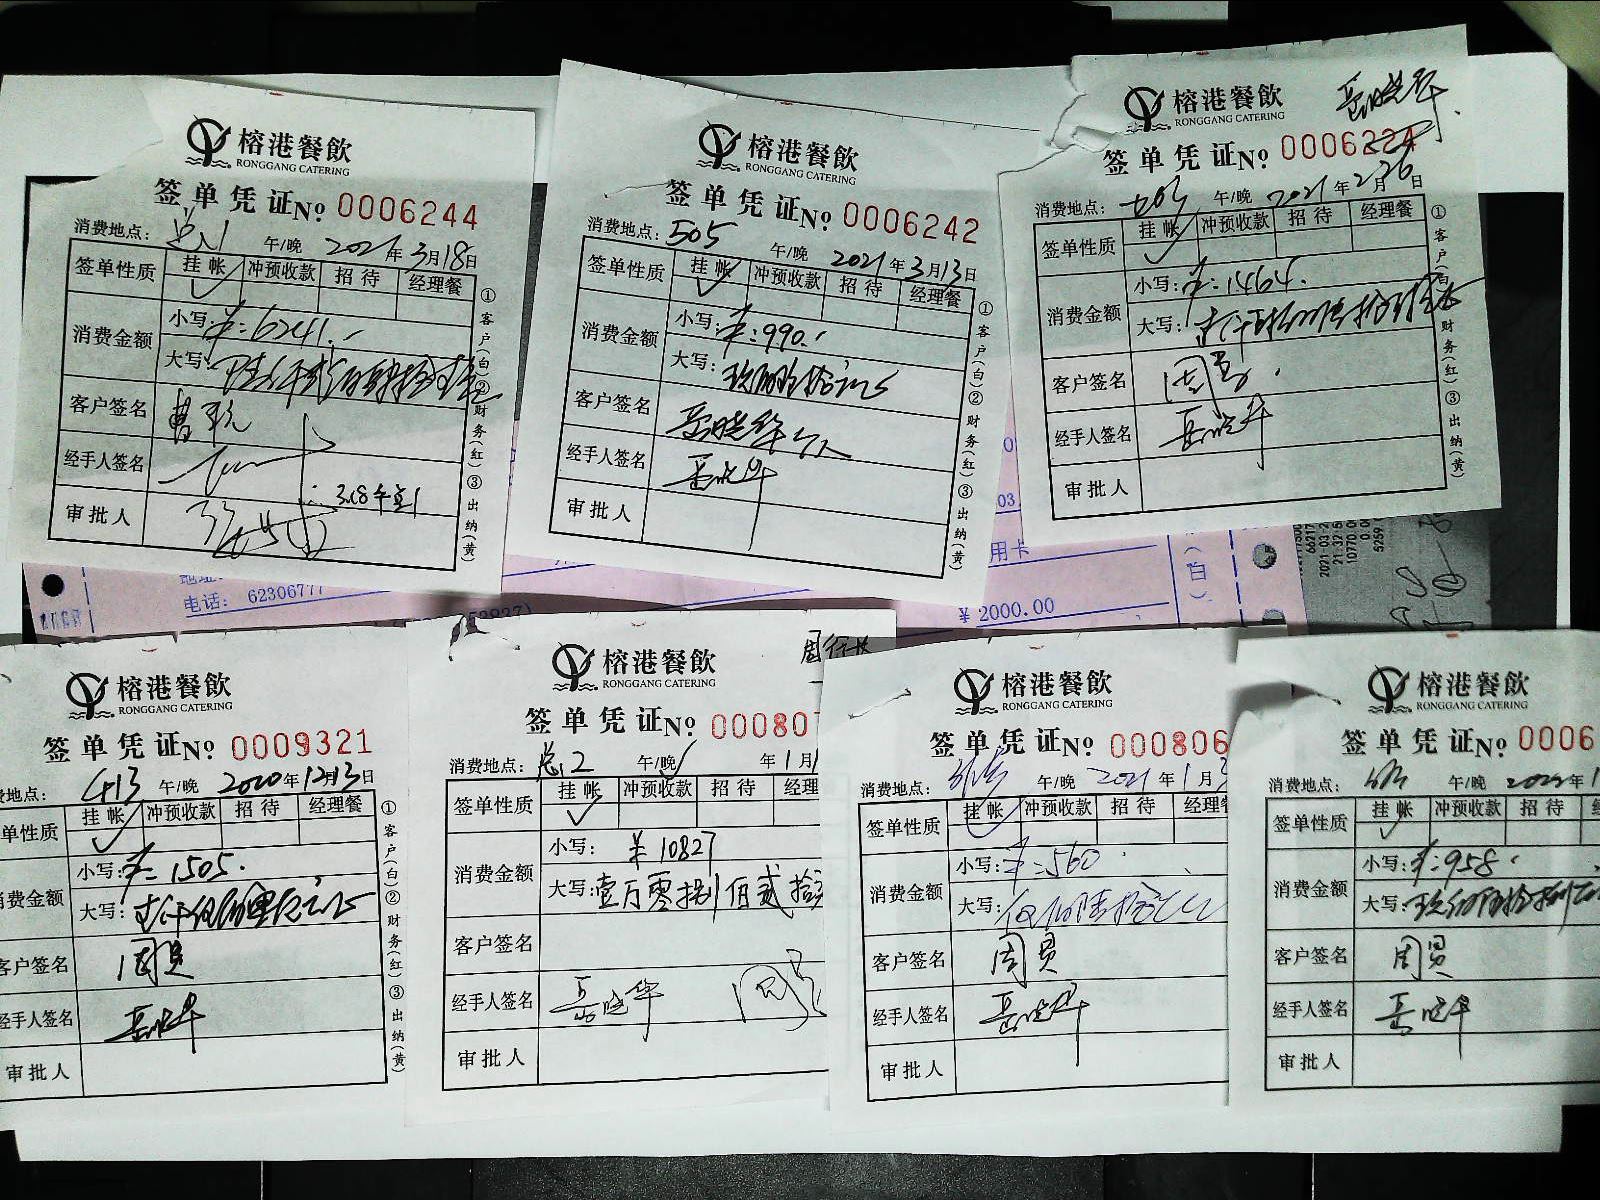 榕港餐飲
RONGGANG CATERING
签单凭证№ 0006244
消费地点: 总1 午/晚 2021年3月18日
签单性质 挂帐 冲预收款 招待 经理餐
消费金额 小写: ¥:6241.
大写: 陆仟贰佰肆拾壹元
客户签名
经手人签名
3.18午总1
审批人
①客户(白)②财务(红)③出纳(黄)
榕港餐飲
RONGGANG CATERING
签单凭证№ 0006242
消费地点: 505 午/晚 2021年3月13日
签单性质 挂帐 冲预收款 招待 经理餐
消费金额 小写: ¥:990.
大写: 玖佰玖拾元正
客户签名 岳晓华
经手人签名 岳晓华
审批人
①客户(白)②财务(红)③出纳(黄)
榕港餐飲
RONGGANG CATERING
岳晓华
签单凭证№ 0006224
消费地点: 午/晚 2021年2月26日
签单性质 挂帐 冲预收款 招待 经理餐
消费金额 小写: ¥:1464.
大写: 壹仟肆佰陆拾肆元
客户签名 周贤
经手人签名 岳晓华
审批人
①客户(白)②财务(红)③出纳(黄)
电话: 62306777
用卡
¥ 2000.00
(白)
榕港餐飲
RONGGANG CATERING
签单凭证№ 0009321
费地点: 413 午/晚 2020年12月13日
单性质 挂帐 冲预收款 招待 经理餐
消费金额 小写: ¥:1505.
大写: 壹仟伍佰零伍元正
客户签名 周贤
经手人签名 岳晓华
审批人
①客户(白)②财务(红)③出纳(黄)
榕港餐飲
RONGGANG CATERING
签单凭证№ 000807
消费地点: 总2 午/晚 年1月1
签单性质 挂帐 冲预收款 招待 经理
消费金额 小写: ¥10827
大写: 壹万零捌佰贰拾
客户签名
经手人签名 岳晓华 周贤
审批人
榕港餐飲
RONGGANG CATERING
签单凭证№ 000806
消费地点: 午/晚 2021年1月3
签单性质 挂帐 冲预收款 招待 经理
消费金额 小写: ¥:560
大写: 伍佰陆拾元正
客户签名 周贤
经手人签名 岳晓华
审批人
榕港餐飲
RONGGANG CATERING
签单凭证№ 0006
消费地点: 午/晚 年1
签单性质 挂帐 冲预收款 招待
消费金额 小写: ¥:958.
大写: 玖佰伍拾捌元
客户签名 周贤
经手人签名 岳晓华
审批人